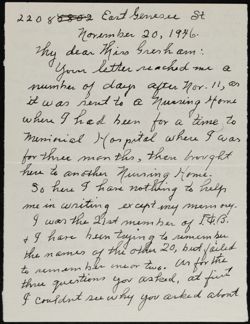 2208 East Genesee St
November 20, 1946.
My dear Miss Gresham:
Your letter reached me a
number of days after Nov. 11, as
it was sent to a Nursing Home
where I had been for a time to
Memorial Hospital where I was
for three months, then brought
here to another Nursing Home.
So here I have nothing to help
me in writing except my memory.
I was the 21st member of
& I have been trying to remember
the names of the other 20, but failed
to remember one or two. As for the
three questions you asked, at first
I couldnt see why you asked about